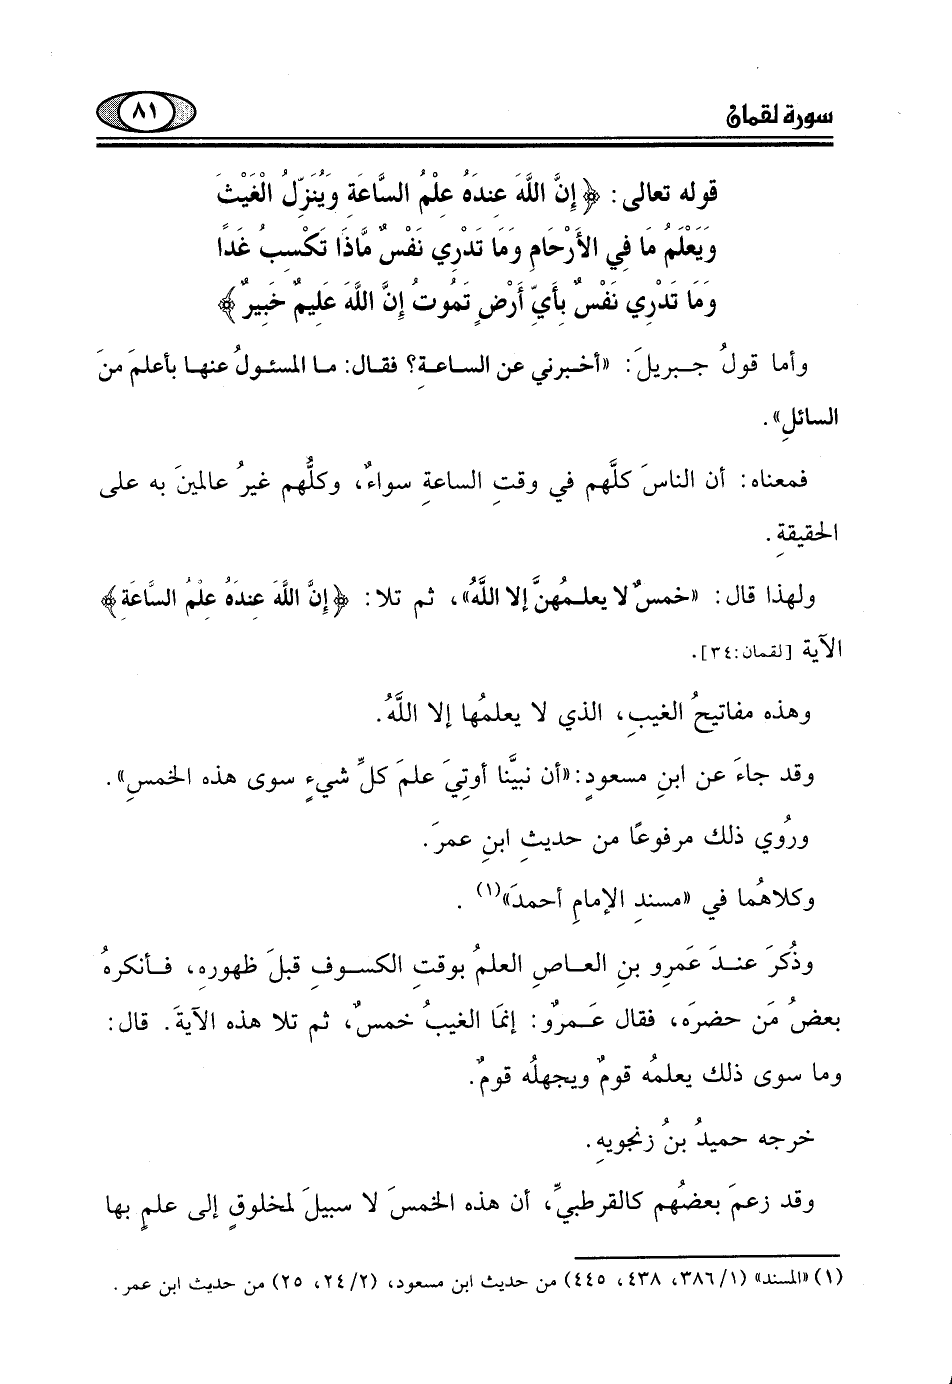 سورة لقمان
٨١
قوله تعالى: ﴿إِنَّ اللَّهَ عِندَهُ عِلْمُ السَّاعَةِ وَيُنَزِّلُ الْغَيْثَ
وَيَعْلَمُ مَا فِي الأَرْحَامِ وَمَا تَدْرِي نَفْسٌ مَّاذَا تَكْسِبُ غَدًا
وَمَا تَدْرِي نَفْسٌ بِأَيِّ أَرْضٍ تَمُوتُ إِنَّ اللَّهَ عَلِيمٌ خَبِيرٌ﴾
وأما قولُ جبريلَ: «أخبرني عن الساعةِ؟ فقال: ما المسئولُ عنها بأعلمَ منَ
السائلِ».
فمعناه: أن الناسَ كلَّهم في وقتِ الساعةِ سواءٌ، وكلُّهم غيرُ عالمينَ به على
الحقيقةِ.
ولهذا قال: «خمسٌ لا يعلمهُنَّ إلا اللَّهُ»، ثم تلا: ﴿إِنَّ اللَّهَ عِندَهُ عِلْمُ السَّاعَةِ﴾
الآية [لقمان:٣٤].
وهذه مفاتيحُ الغيبِ، الذي لا يعلمُها إلا اللَّهُ.
وقد جاءَ عن ابنِ مسعودٍ: «أن نبيَّنا أوتيَ علمَ كلِّ شيءٍ سوى هذه الخمسِ».
ورُوي ذلك مرفوعًا من حديثِ ابنِ عمرَ.
وكلاهُما في «مسندِ الإمامِ أحمدَ»(١) .
وذُكرَ عندَ عَمرِو بنِ العاصِ العلمُ بوقتِ الكسوفِ قبلَ ظهورِه، فأنكرهُ
بعضُ مَن حضرَه، فقال عَمرٌو: إنمَا الغيبُ خمسٌ، ثم تلا هذه الآيةَ. قال:
وما سوى ذلك يعلمُه قومٌ ويجهلُه قومٌ.
خرجه حميدُ بنُ زنجويهِ.
وقد زعمَ بعضُهم كالقرطبيِّ، أن هذه الخمسَ لا سبيلَ لمخلوقٍ إلى علمٍ بها
(١) «المسند» (١/ ٣٨٦، ٤٣٨، ٤٤٥) من حديث ابن مسعود، (٢/ ٢٤، ٢٥) من حديث ابن عمر.